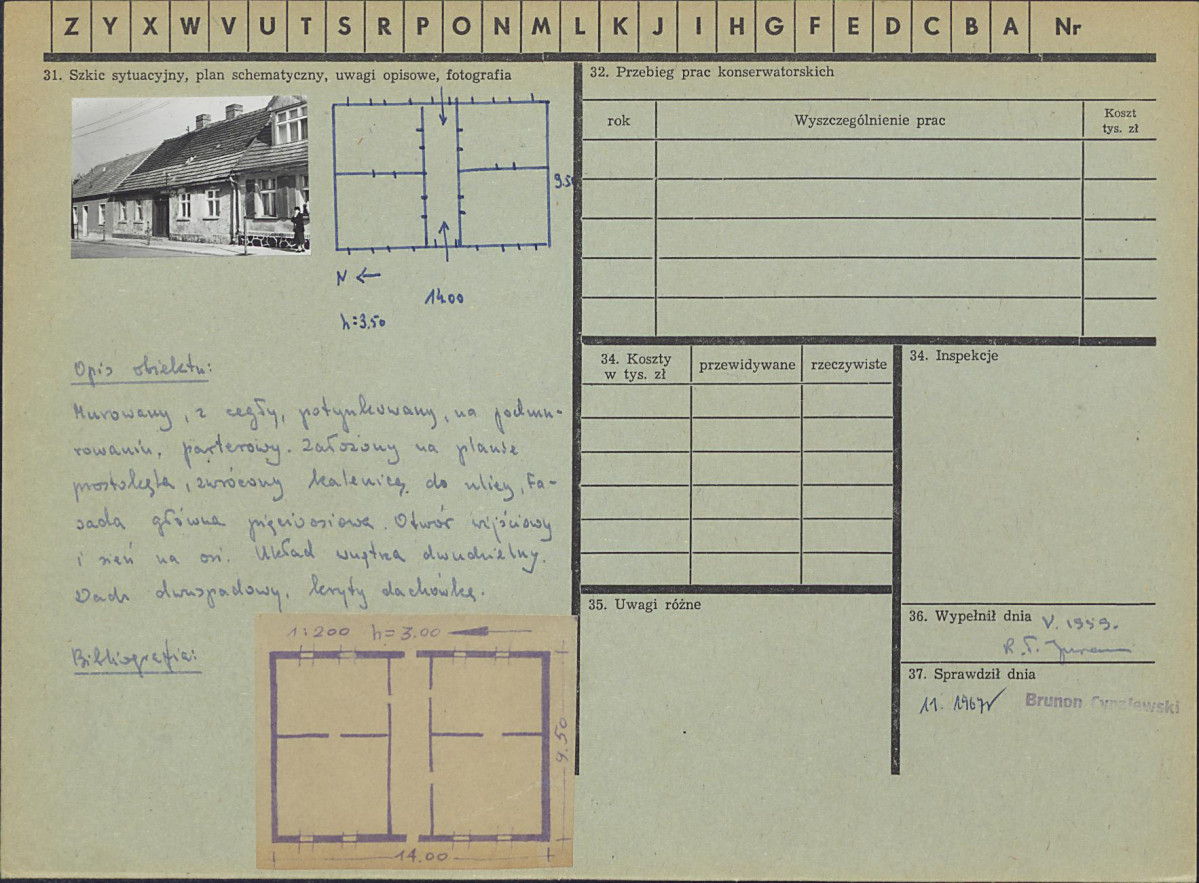 Z Y X W V U T S R P O N M L K J I H G F E D C B A Nr
31. Szkic sytuacyjny, plan schematyczny, uwagi opisowe, fotografia
9.50
N
14.00
h=3.50
Opis obiektu:
Murowany, z cegły, potynkowany, na podmu-
rowaniu, parterowy. Założony na planie
prostokąta, zwrócony kalenicą do ulicy, Fa-
sada główna pięcioosiowa. Otwór wejściowy
i sień na osi. Układ wnętrza dwudzielny.
Dach dwuspadowy, kryty dachówką.
Bibliografia:
1:200 h=3.00
9.50
14.00
32. Przebieg prac konserwatorskich
rok
Wyszczególnienie prac
Koszt
tys. zł
34. Koszty
w tys. zł
przewidywane
rzeczywiste
34. Inspekcje
35. Uwagi różne
36. Wypełnił dnia V. 1959.
R. T.
37. Sprawdził dnia
11. 1967r
Brunon